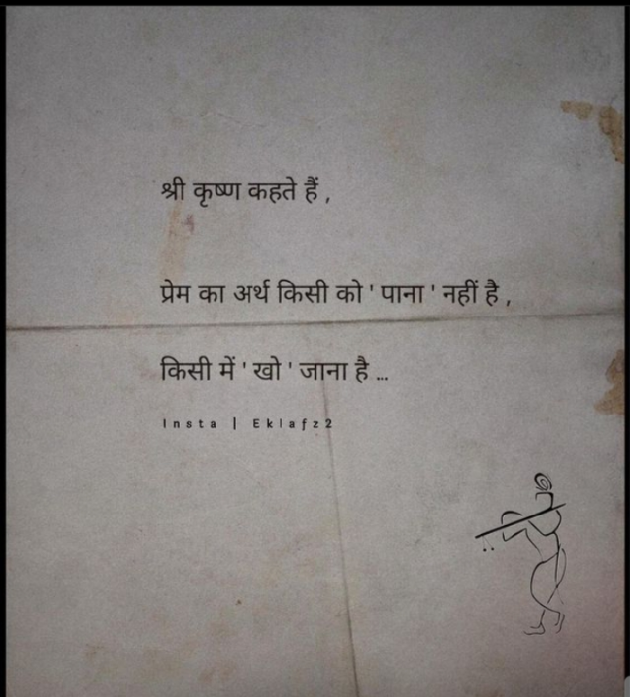 श्री कृष्ण कहते हैं ,
प्रेम का अर्थ किसी को ' पाना ' नहीं है ,
किसी में ' खो ' जाना है ...
Insta | Eklafz2